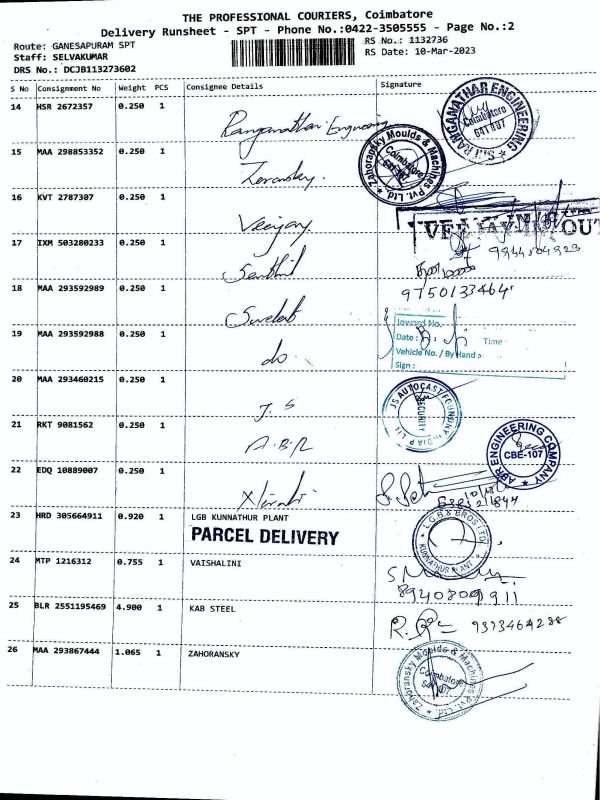 THE PROFESSIONAL COURIERS, Coimbatore
Delivery Runsheet - SPT - Phone No.:0422-3505555 - Page No.:2
Route: GANESAPURAM SPT
Staff: SELVAKUMAR
DRS No.: DCJB113273602
RS No.: 1132736
RS Date: 10-Mar-2023
S No Consignment No Weight PCS Consignee Details Signature
14 HSR 2672357 0.250 1 Ranganathar Engineering
RANGANATHAR ENGINEERING
Coimbatore
641 107
15 MAA 298853352 0.250 1
Zahoransky Moulds & Machines Pvt. Ltd
Coimbatore
16 KVT 2787307 0.250 1 Veejay
VEEJAY
17 IXM 503280233 0.250 1 Senthil
18 MAA 293592989 0.250 1
9750133464
19 MAA 293592988 0.250 1 do
Inward No.
Date : Time :
Vehicle No. / By Hand
Sign :
20 MAA 293460215 0.250 1 J. S
JS AUTOCAST FOUNDRY INDIA P LTD
SECURITY
21 RKT 9081562 0.250 1 A.B.R
ABR ENGINEERING COMPANY
CBE-107
22 EDQ 10889007 0.250 1
23 HRD 305664911 0.920 1 LGB KUNNATHUR PLANT
PARCEL DELIVERY
L.G.B & BROS LTD
KUNNATHUR PLANT
24 MTP 1216312 0.755 1 VAISHALINI
8940809911
25 BLR 2551195469 4.900 1 KAB STEEL
9373464288
26 MAA 293867444 1.065 1 ZAHORANSKY
Zahoransky Moulds & Machines Pvt. Ltd.
Coimbatore
641 107